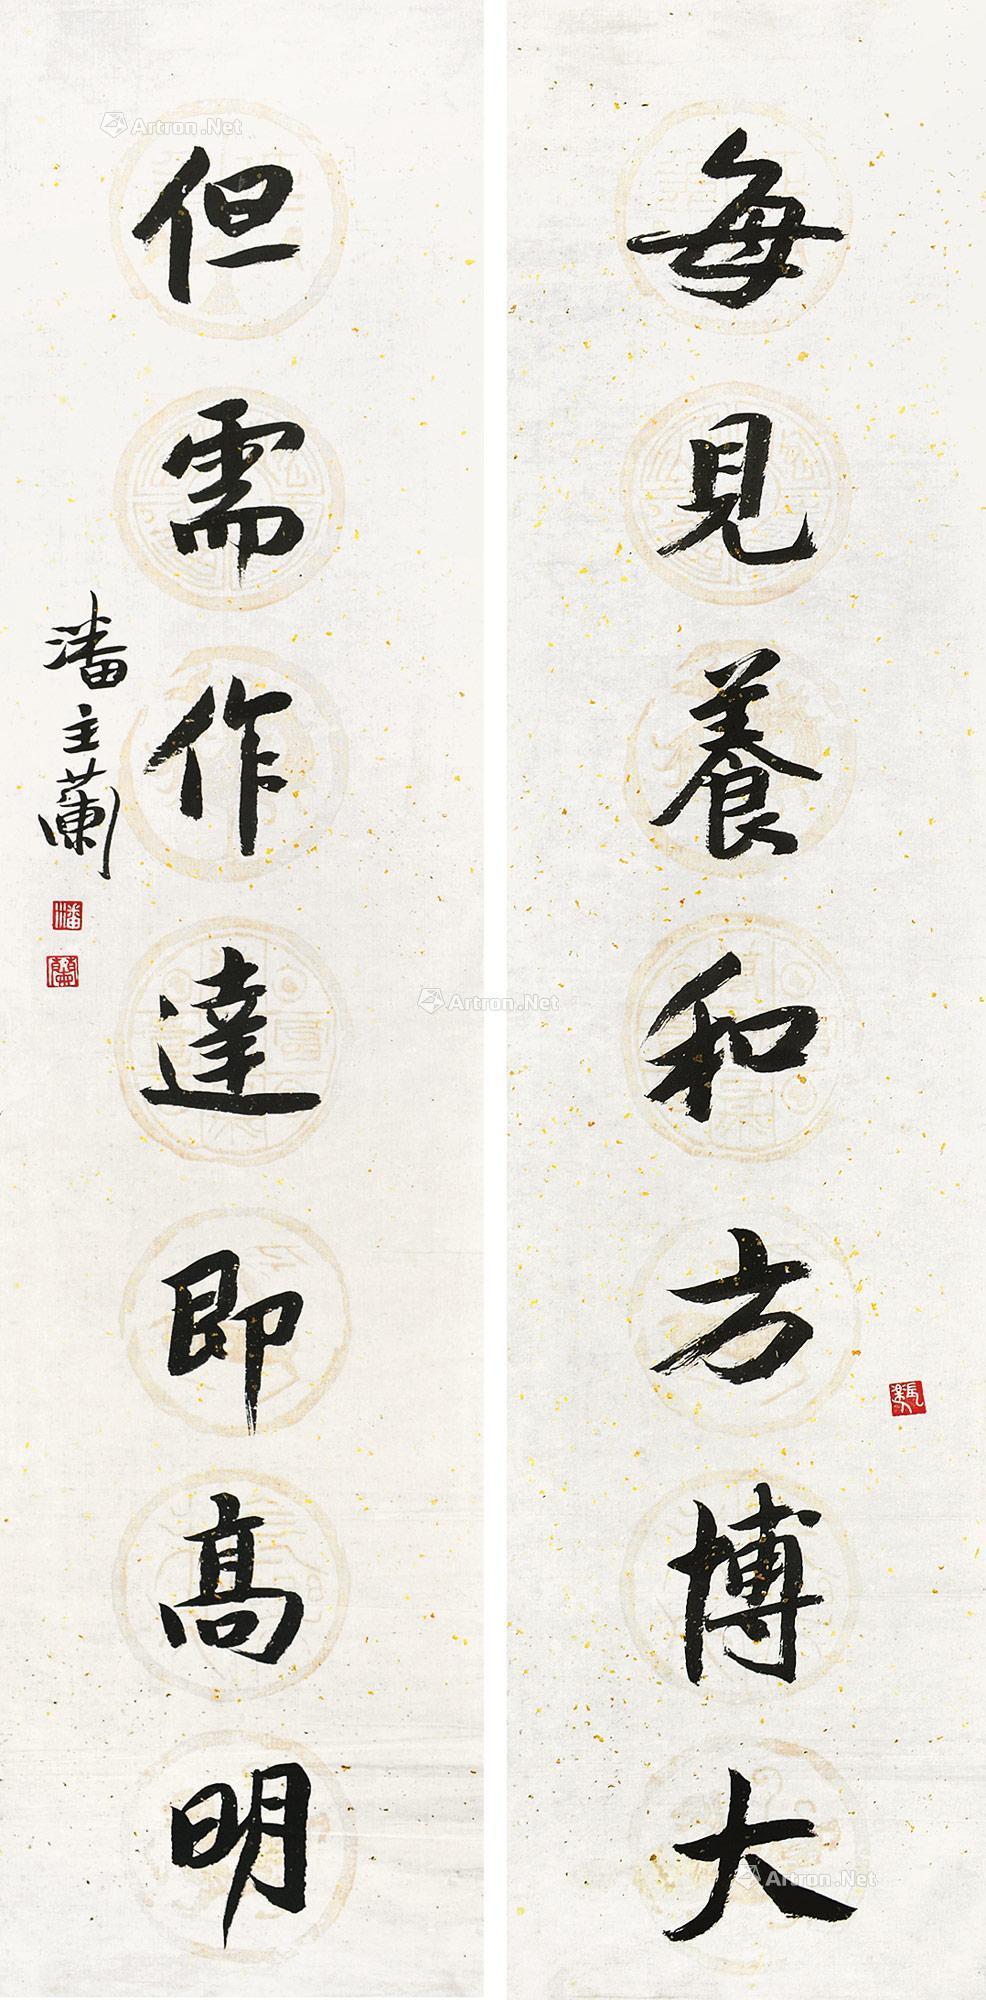 每見養和方博大
但需作達即高明
潘主蘭
Artron.Net
Artron.Net
Artron.Net